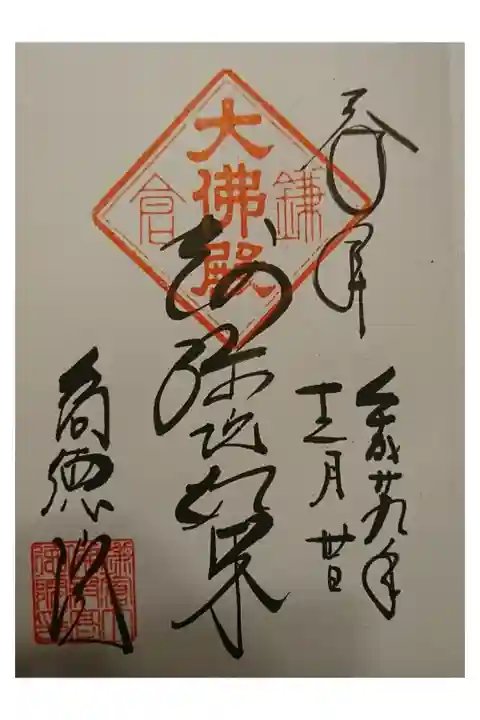 奉拝
平成廿九年
十二月廿日
大佛殿
鎌倉
阿弥陀如来
高徳院